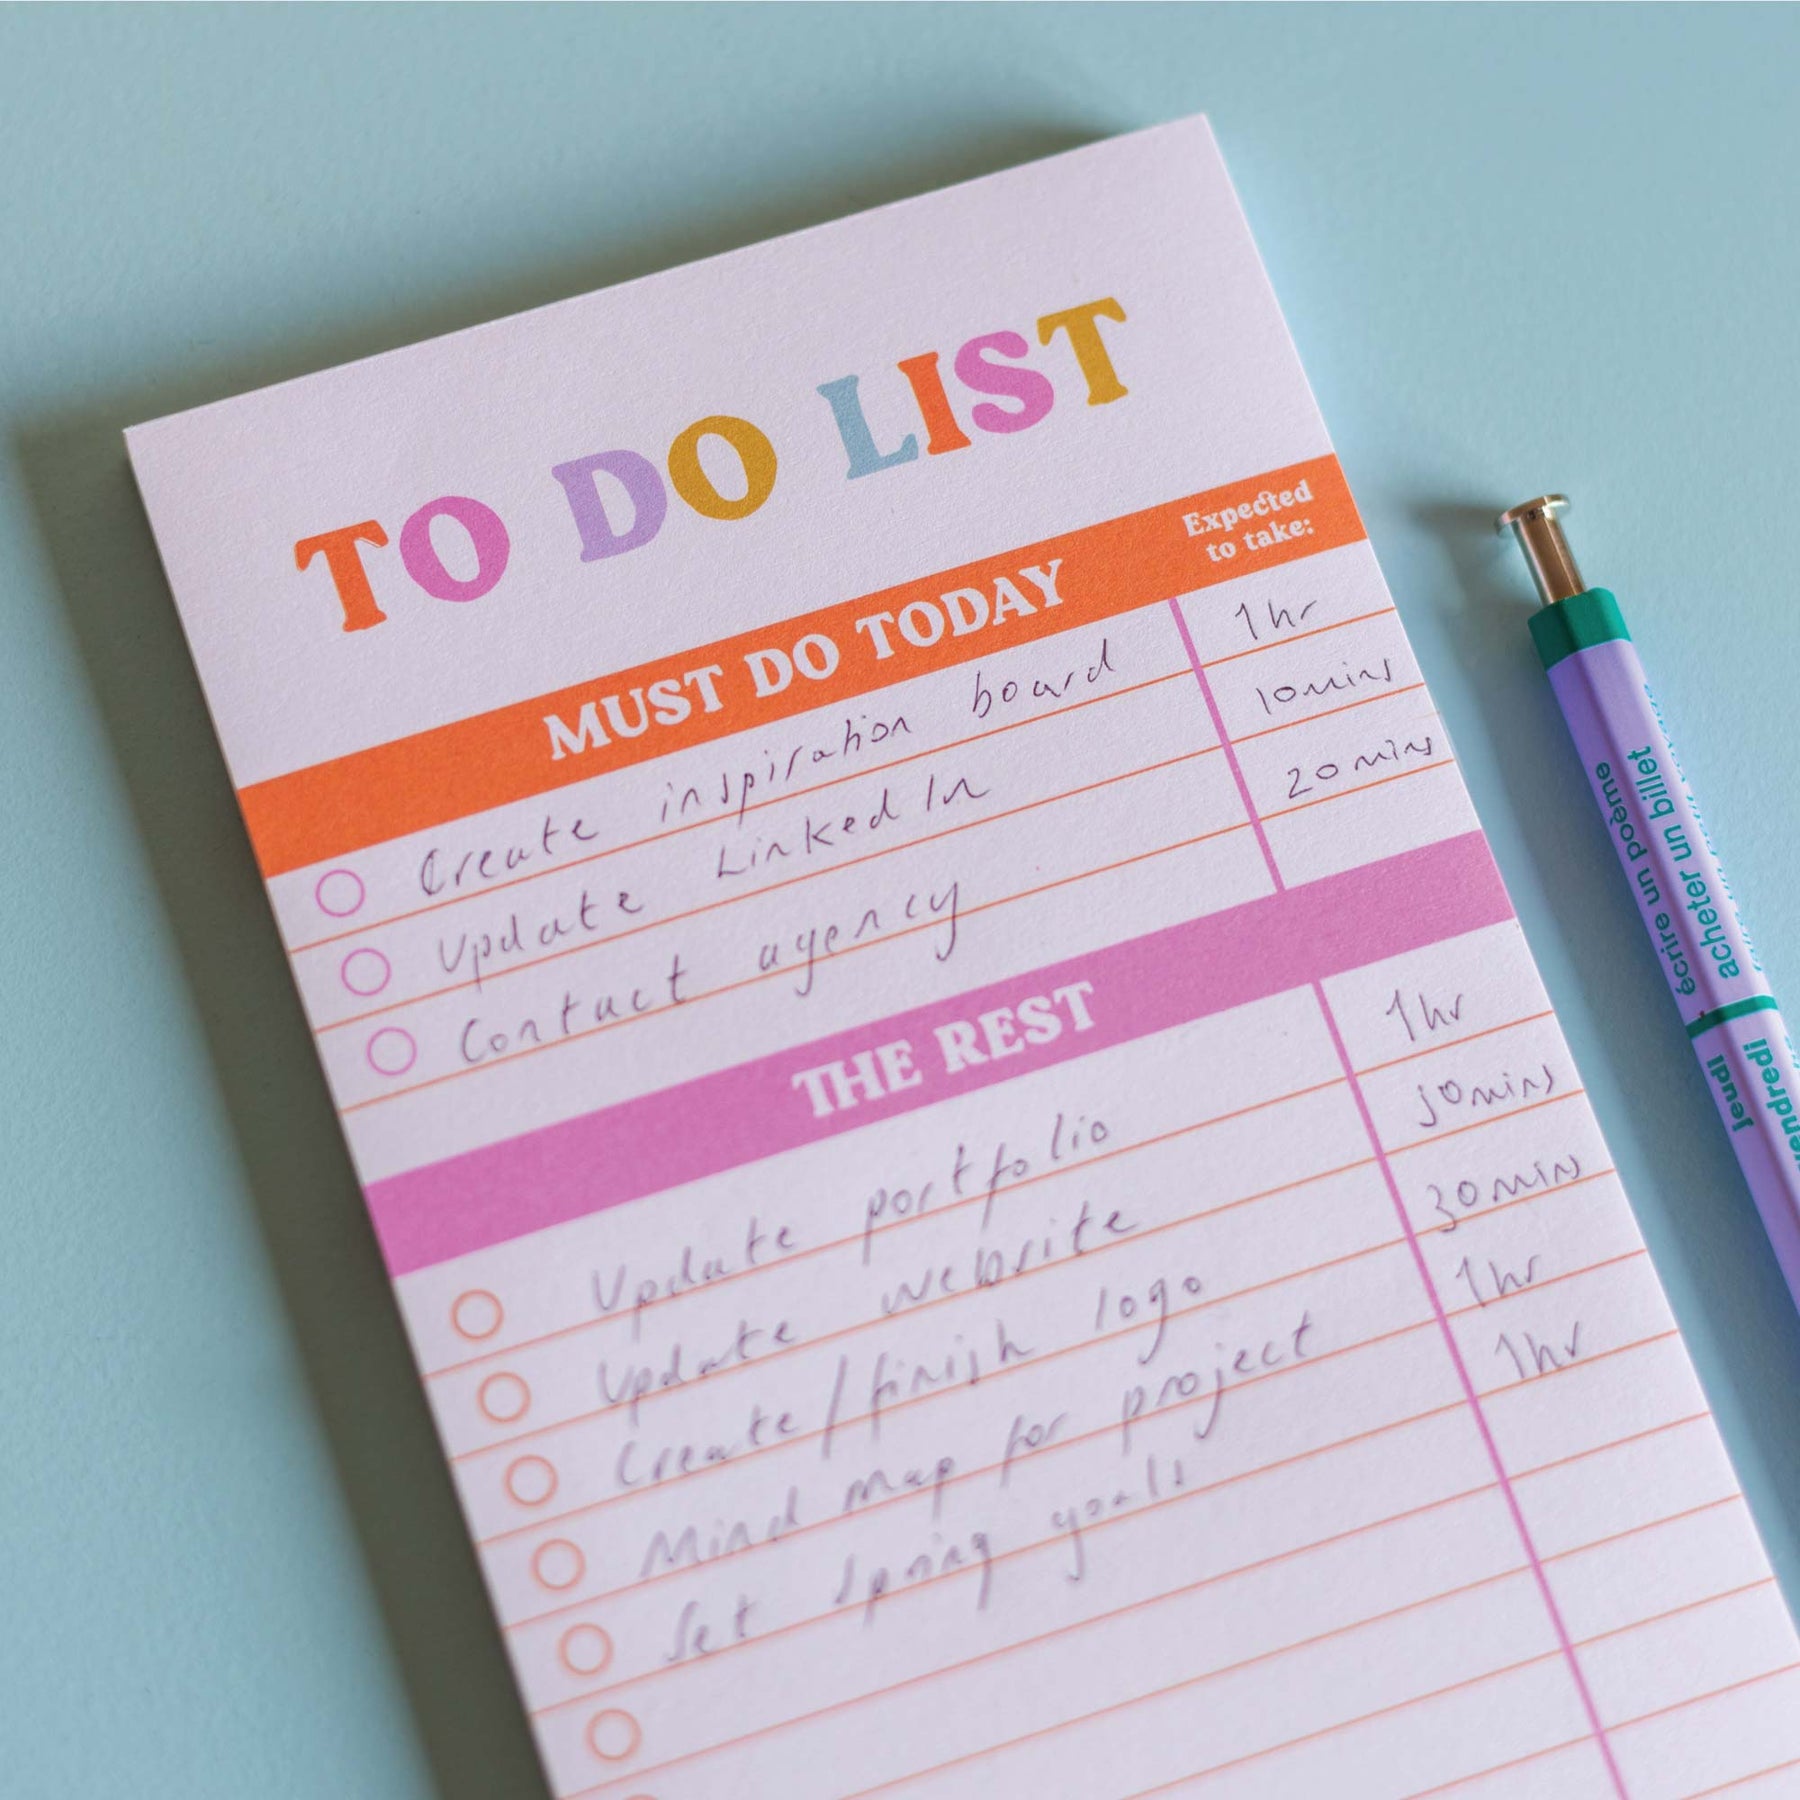 TO DO LIST
MUST DO TODAY Expected to take:
Create inspiration board 1hr
Update LinkedIn 10mins
Contact agency 20mins
THE REST
Update portfolio 1hr
Update website
Create/finish logo 30mins
Mind map for project 1hr
Set spring goals 1hr
écrire un poème
acheter un billet
jeudi
vendredi